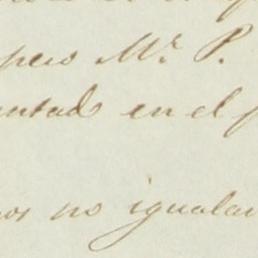 pero Mr. P.
untad en el p
os no igualar